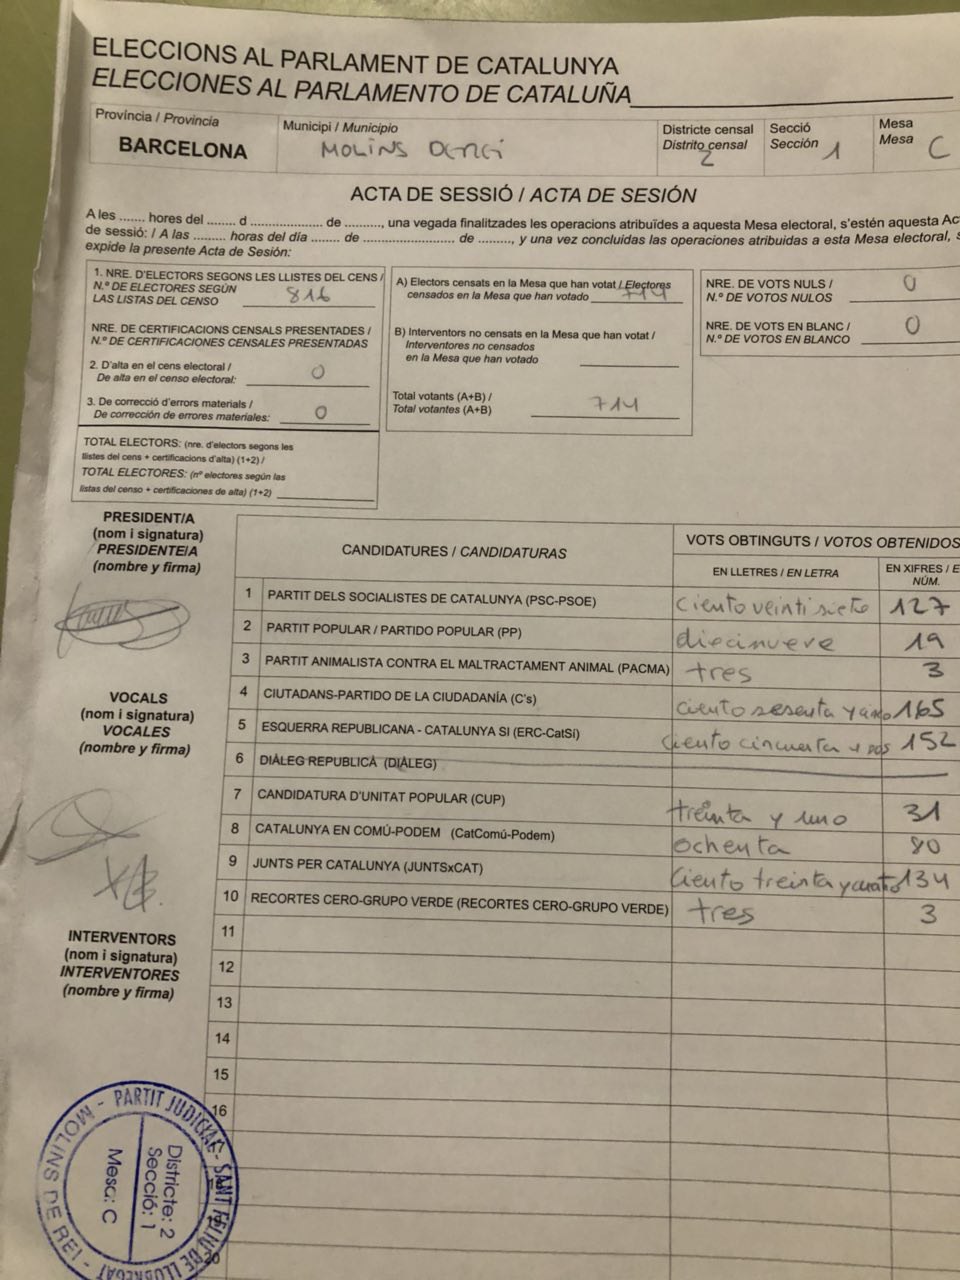 ELECCIONS AL PARLAMENT DE CATALUNYA
ELECCIONES AL PARLAMENTO DE CATALUÑA
Província / Provincia
BARCELONA
Municipi / Municipio
MOLINS
Districte censal
Distrito censal
2
Secció
Sección 1
Mesa
Mesa C
ACTA DE SESSIÓ / ACTA DE SESIÓN
A les ....... hores del ....... d ..................... de ........., una vegada finalitzades les operacions atribuïdes a aquesta Mesa electoral, s'estén aquesta
de sessió: / A las ......... horas del día ....... de ........................ de ........, y una vez concluidas las operaciones atribuidas a esta Mesa electoral,
expide la presente Acta de Sesión:
1. NRE. D'ELECTORS SEGONS LES LLISTES DEL CENS /
N.º DE ELECTORES SEGÚN
LAS LISTAS DEL CENSO 816
NRE. DE CERTIFICACIONS CENSALS PRESENTADES /
N.º DE CERTIFICACIONES CENSALES PRESENTADAS
2. D'alta en el cens electoral /
De alta en el censo electoral: 0
3. De correcció d'errors materials /
De corrección de errores materiales: 0
TOTAL ELECTORS: (nre. d'electors segons les
llistes del cens + certificacions d'alta) (1+2) /
TOTAL ELECTORES: (nº electores según las
listas del censo + certificaciones de alta) (1+2)
A) Electors censats en la Mesa que han votat / Electores
censados en la Mesa que han votado 714
B) Interventors no censats en la Mesa que han votat /
Interventores no censados
en la Mesa que han votado
Total votants (A+B) /
Total votantes (A+B) 714
NRE. DE VOTS NULS /
N.º DE VOTOS NULOS 0
NRE. DE VOTS EN BLANC /
N.º DE VOTOS EN BLANCO 0
PRESIDENT/A
(nom i signatura)
PRESIDENTE/A
(nombre y firma)
VOCALS
(nom i signatura)
VOCALES
(nombre y firma)
INTERVENTORS
(nom i signatura)
INTERVENTORES
(nombre y firma)
CANDIDATURES / CANDIDATURAS
VOTS OBTINGUTS / VOTOS OBTENIDOS
EN LLETRES / EN LETRA
EN XIFRES / E
NÚM.
1 PARTIT DELS SOCIALISTES DE CATALUNYA (PSC-PSOE) ciento veintisiete 127
2 PARTIT POPULAR / PARTIDO POPULAR (PP) diecinueve 19
3 PARTIT ANIMALISTA CONTRA EL MALTRACTAMENT ANIMAL (PACMA) tres 3
4 CIUTADANS-PARTIDO DE LA CIUDADANÍA (C's) ciento sesenta y 165
5 ESQUERRA REPUBLICANA - CATALUNYA SI (ERC-CatSí) ciento cincuenta y dos 152
6 DIÀLEG REPUBLICÀ (DIÀLEG)
7 CANDIDATURA D'UNITAT POPULAR (CUP) treinta y uno 31
8 CATALUNYA EN COMÚ-PODEM (CatComú-Podem) ochenta 80
9 JUNTS PER CATALUNYA (JUNTSxCAT) ciento treinta y cuatro 134
10 RECORTES CERO-GRUPO VERDE (RECORTES CERO-GRUPO VERDE) tres 3
11
12
13
14
15
16
20
PARTIT JUDICIAL - SANT FELIU DE LLOBREGAT
MOLINS DE REI
Districte: 2
Secció: 1
Mesa: C